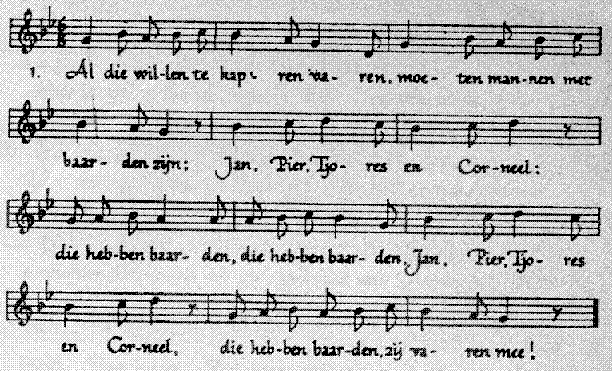 1. Al die wil-len te kap- ren va- ren, moe- ten man-nen met
baar- den zijn; Jan, Pier, Tjo- res en Cor-neel:
die heb-ben baar- den, die heb-ben baar- den, Jan, Pier, Tjo- res
en Cor-neel, die heb-ben baar-den, zij va- ren mee!